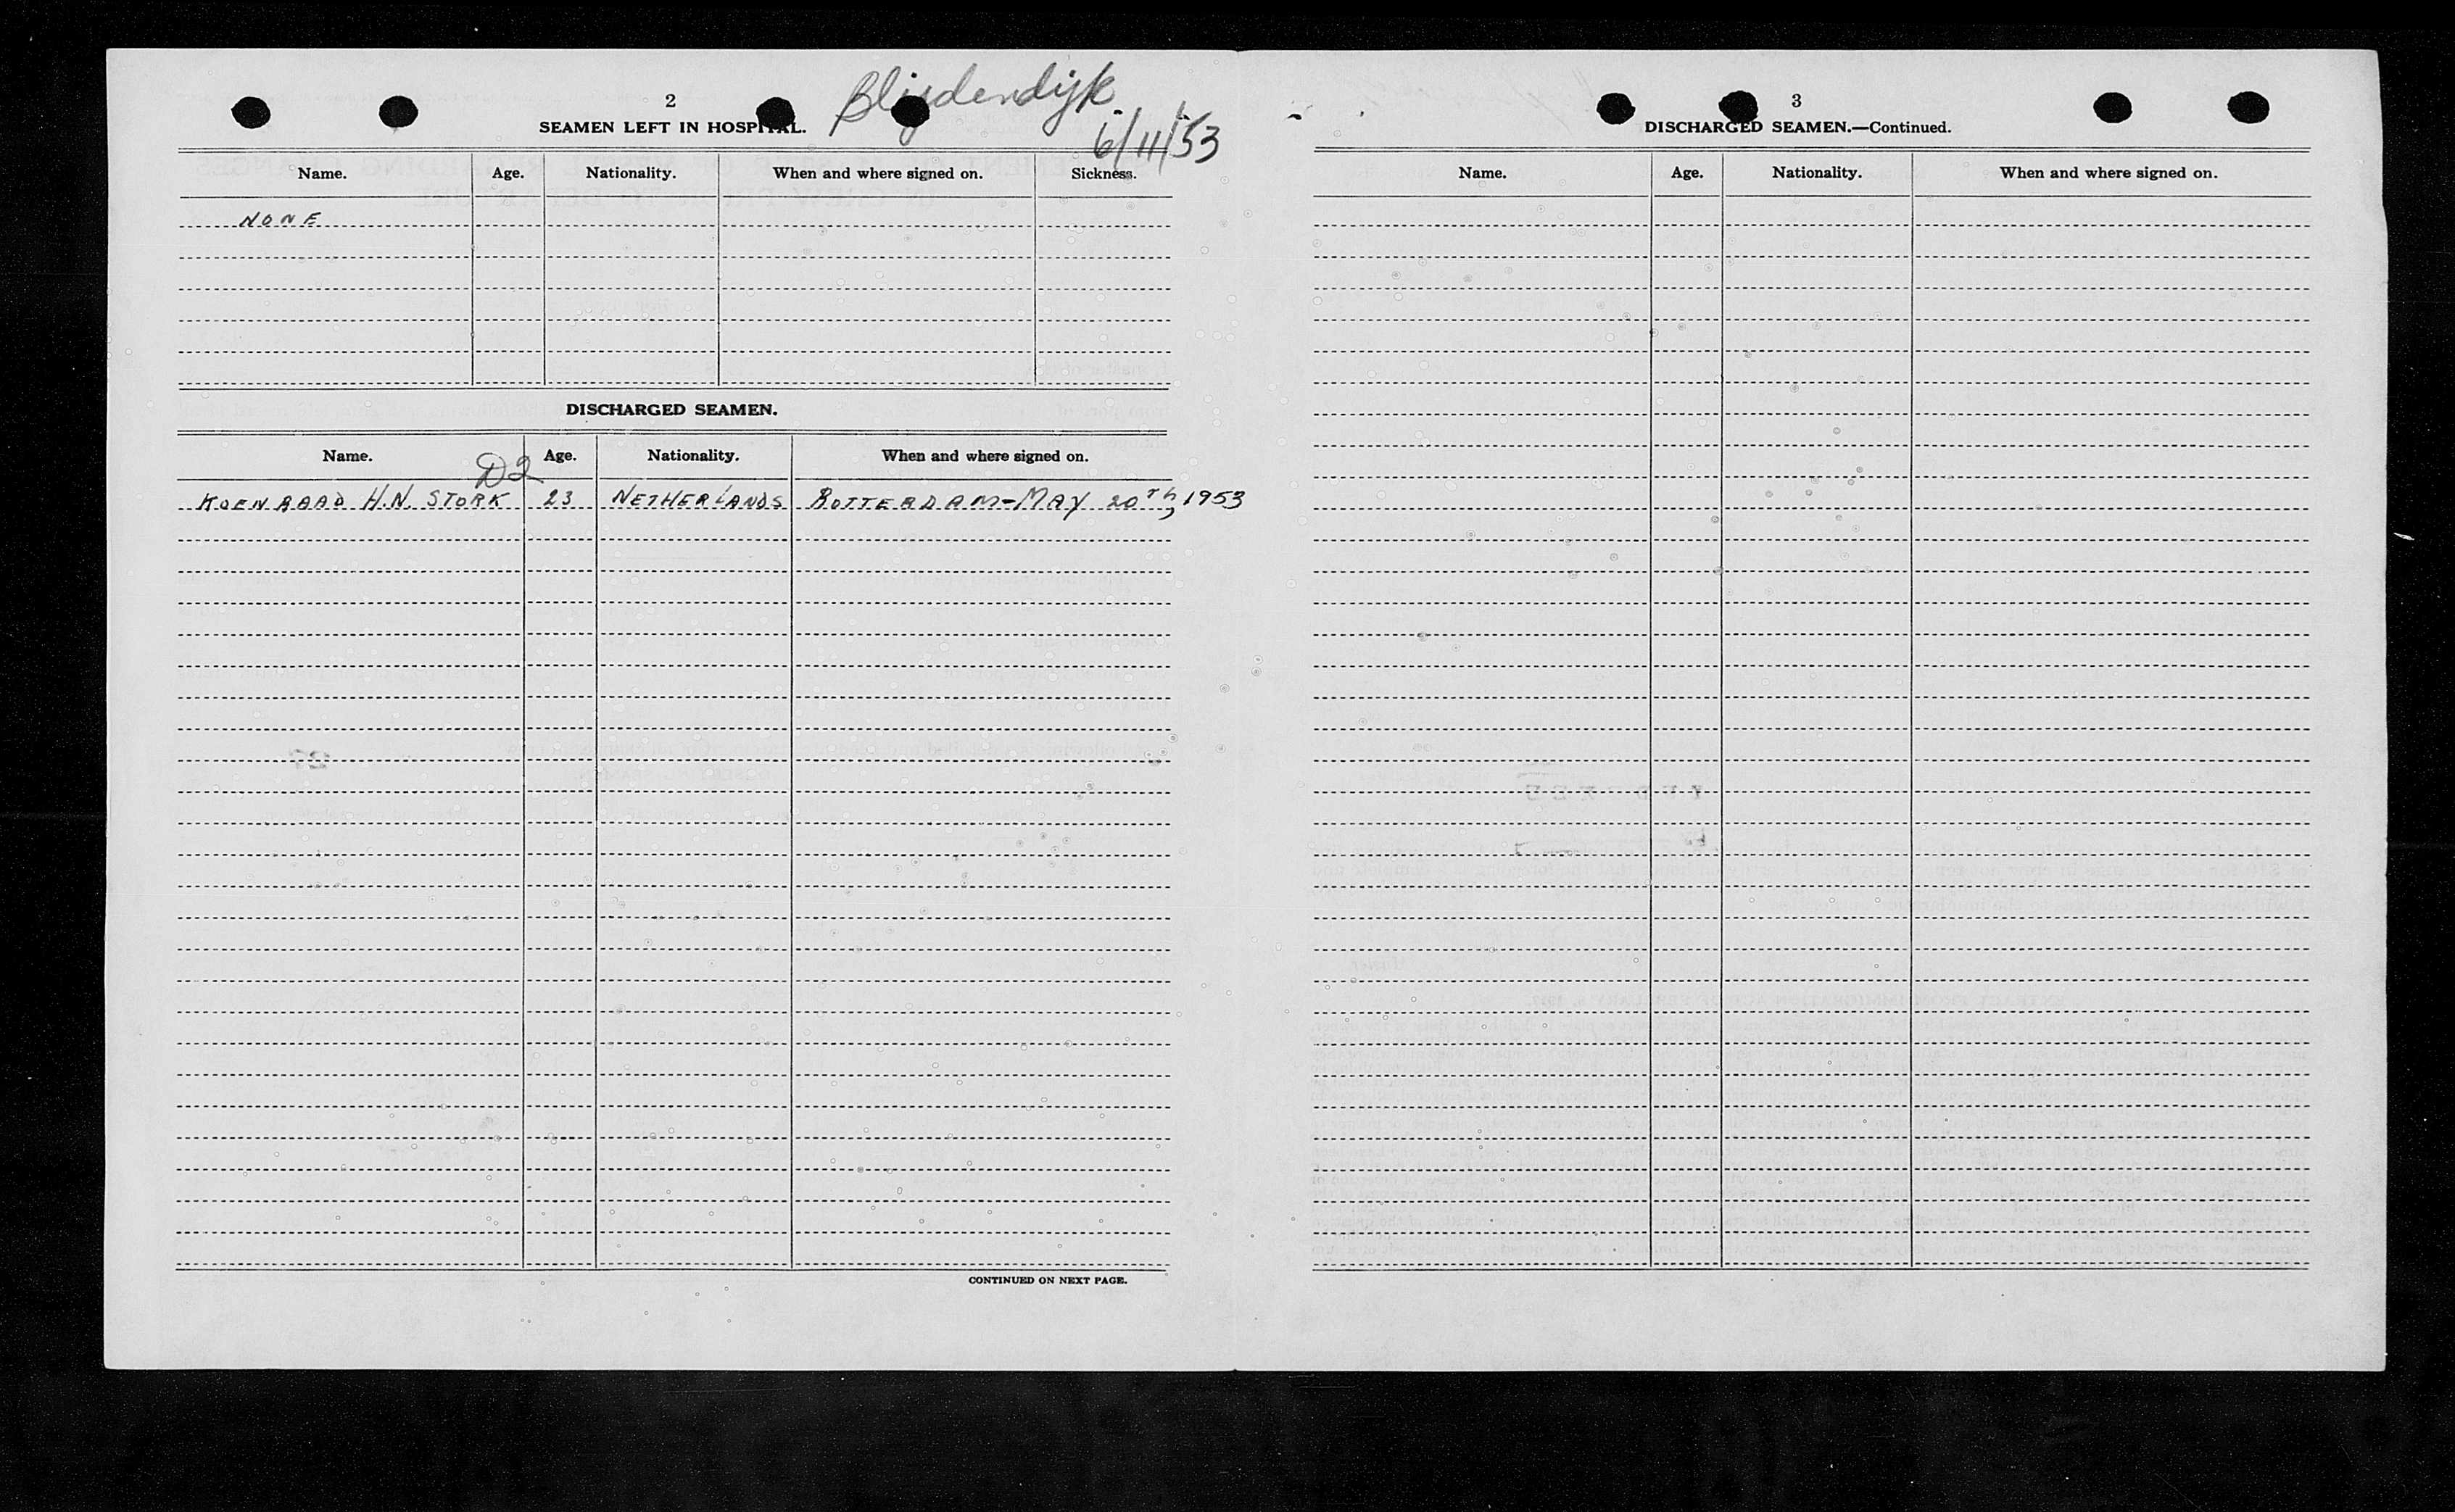 2
Blijdendijk
SEAMEN LEFT IN HOSPITAL.
6/11/53
Name. Age. Nationality. When and where signed on. Sickness.
NONE
DISCHARGED SEAMEN.
Name. Age. Nationality. When and where signed on.
D2
KOENRAAD H.N. STORK 23 NETHERLANDS ROTTERDAM-MAY 20TH, 1953
CONTINUED ON NEXT PAGE.
3
DISCHARGED SEAMEN.—Continued.
Name. Age. Nationality. When and where signed on.